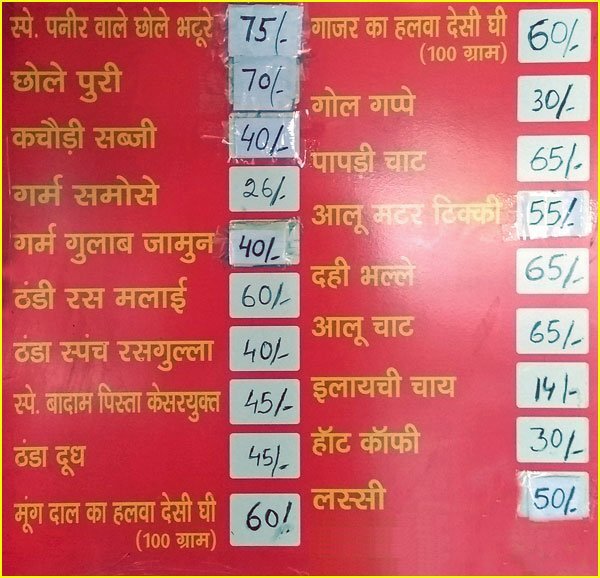 स्पे. पनीर वाले छोले भटूरे 75/-
छोले पुरी 70/-
कचौड़ी सब्जी 40/-
गर्म समोसे 26/-
गर्म गुलाब जामुन 40/-
ठंडी रस मलाई 60/-
ठंडा स्पंच रसगुल्ला 40/-
स्पे. बादाम पिस्ता केसरयुक्त 45/-
ठंडा दूध 45/-
मूंग दाल का हलवा देसी घी 60/-
(100 ग्राम)
गाजर का हलवा देसी घी 60/-
(100 ग्राम)
गोल गप्पे 30/-
पापड़ी चाट 65/-
आलू मटर टिक्की 55/-
दही भल्ले 65/-
आलू चाट 65/-
इलायची चाय 14/-
हॉट कॉफी 30/-
लस्सी 50/-